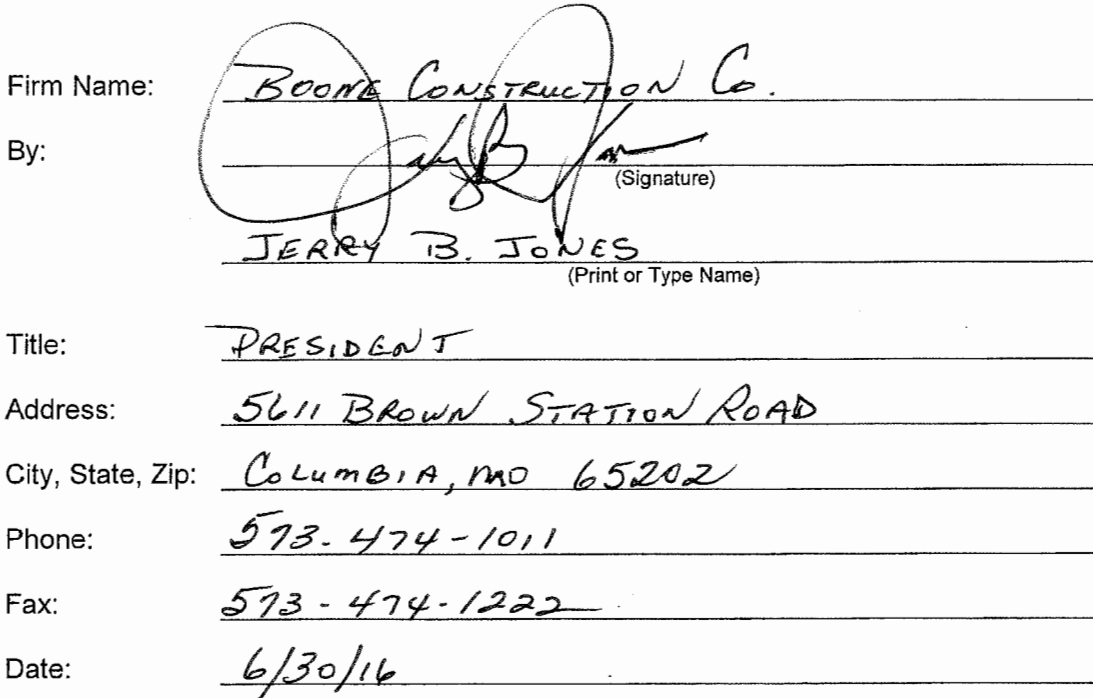 Firm Name: BOONE CONSTRUCTION Co.
By: Jerry B. Jones
(Signature)
JERRY B. JONES
(Print or Type Name)
Title: PRESIDENT
Address: 5611 BROWN STATION ROAD
City, State, Zip: COLUMBIA, MO 65202
Phone: 573-474-1011
Fax: 573-474-1222
Date: 6/30/16